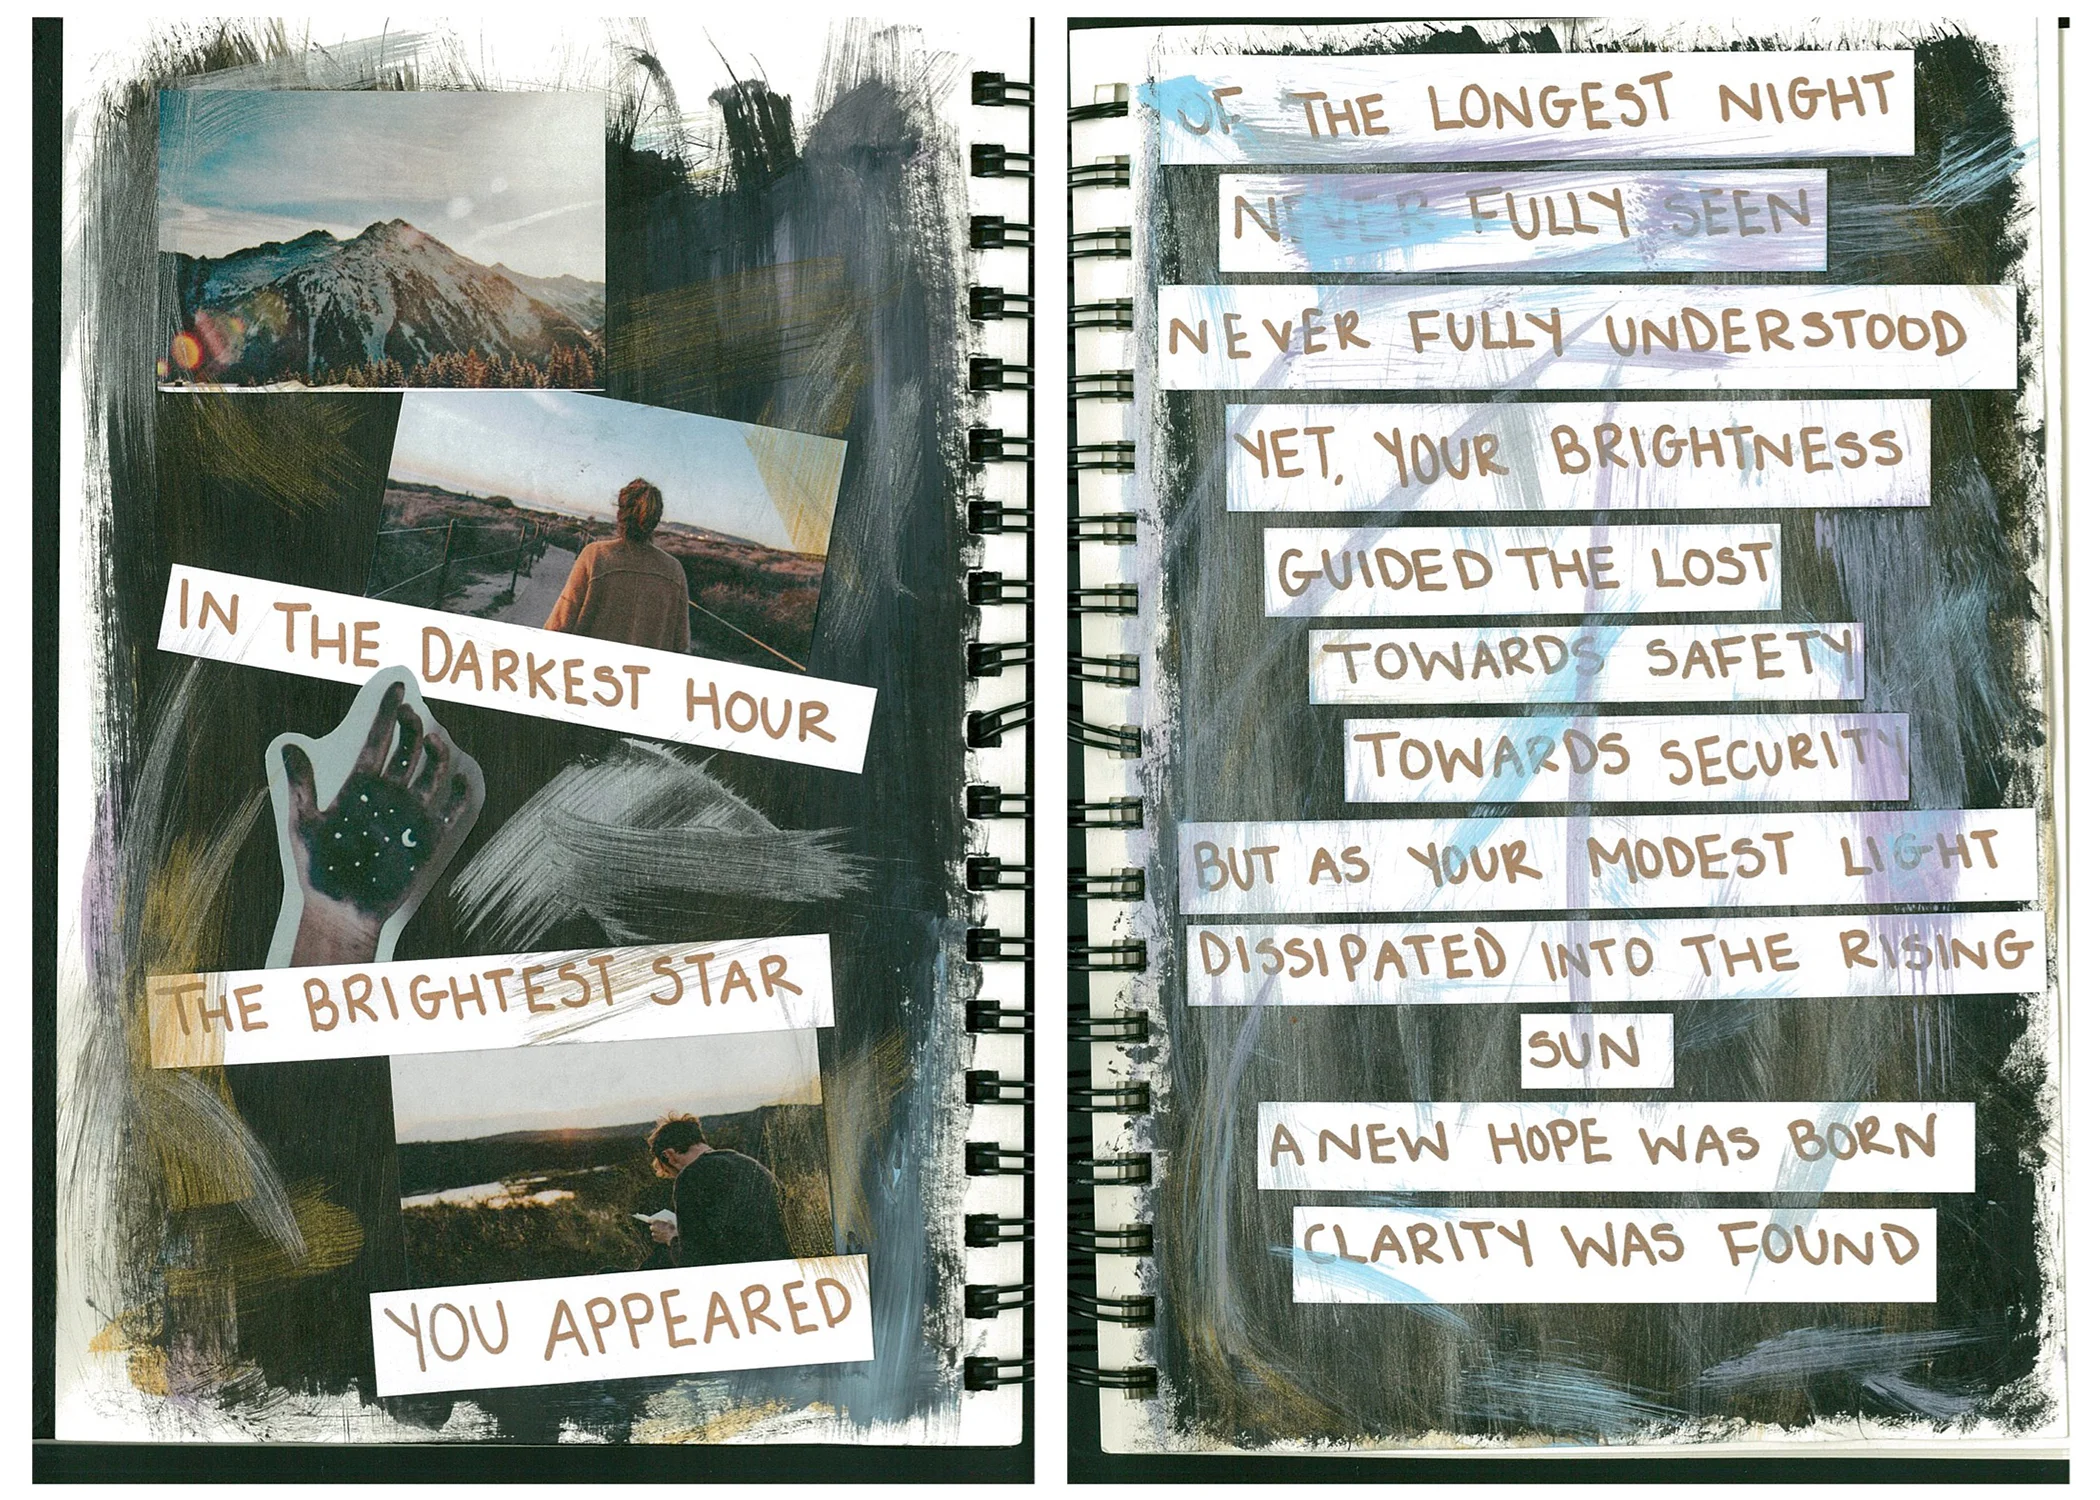 IN THE DARKEST HOUR
THE BRIGHTEST STAR
YOU APPEARED
OF THE LONGEST NIGHT
NEVER FULLY SEEN
NEVER FULLY UNDERSTOOD
YET, YOUR BRIGHTNESS
GUIDED THE LOST
TOWARDS SAFETY
TOWARDS SECURITY
BUT AS YOUR MODEST LIGHT
DISSIPATED INTO THE RISING
SUN
A NEW HOPE WAS BORN
CLARITY WAS FOUND